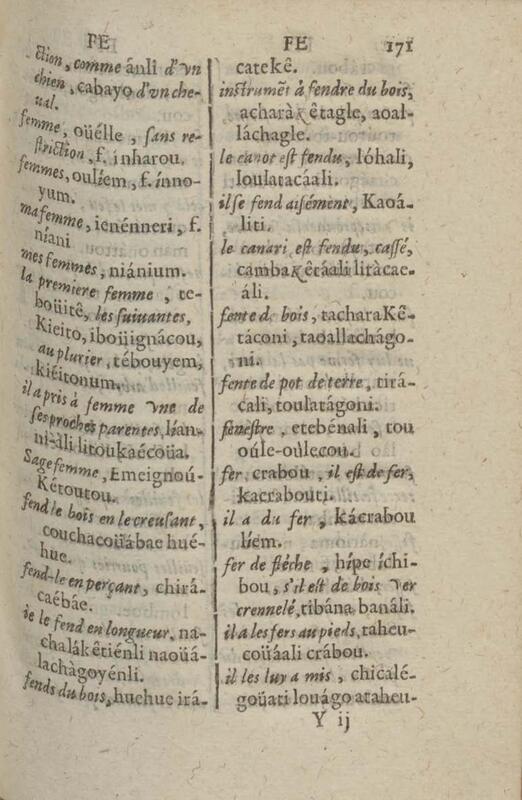 FE
ction, comme ánli d'vn
chien, cabayo d'vn che-
ual.
femme, oüélle, sans re-
striction, f. inharou.
femmes, ouliem, f. ínno-
yum.
ma femme, ienénneri, f.
níani
mes femmes, niánium.
la premiere femme, te-
boüitê, les suiuantes,
Kieito, iboüignácou,
au plurier, tébouyem,
kiéitonum.
il a pris à femme vne de
ses proches parentes, lían-
ni-áli litoukaécoüa.
Sage femme, Emeignoú-
Kétoutou.
fend le bois en le creusant,
couchacoüábae hué-
hue.
fend-le en perçant, chirá-
caébáe.
ie le fend en longueur, na-
chalákêtiénli naoüá-
lachàgoyénli.
fends du bois, huehue irá-
FE 171
catekê.
instrumẽt à fendre du bois,
acharàKêtagle, aoal-
láchagle.
le canot est fendu, lóhali,
loulatacáali.
il se fend aisément, Kaoá-
liti.
le canari est fendu, cassé,
cambaKêtáali litàcae-
áli.
fente de bois, tacharaKê-
táconi, taoallachágo-
ni.
fente de pot de terre, tirá-
cali, toulatágoni.
fenestre, etebénali, tou
oúle-oúlecou.
fer, crabou, il est de fer,
kacrabouti.
il a du fer, kácrabou
líem.
fer de fléche, hípe íchi-
bou, s'il est de bois ver
crennelé, tibána banáli.
il a les fers au pieds, taheu-
coüáali crábou.
il les luy a mis, chicalé-
goüati louágo ataheu-
Y ij